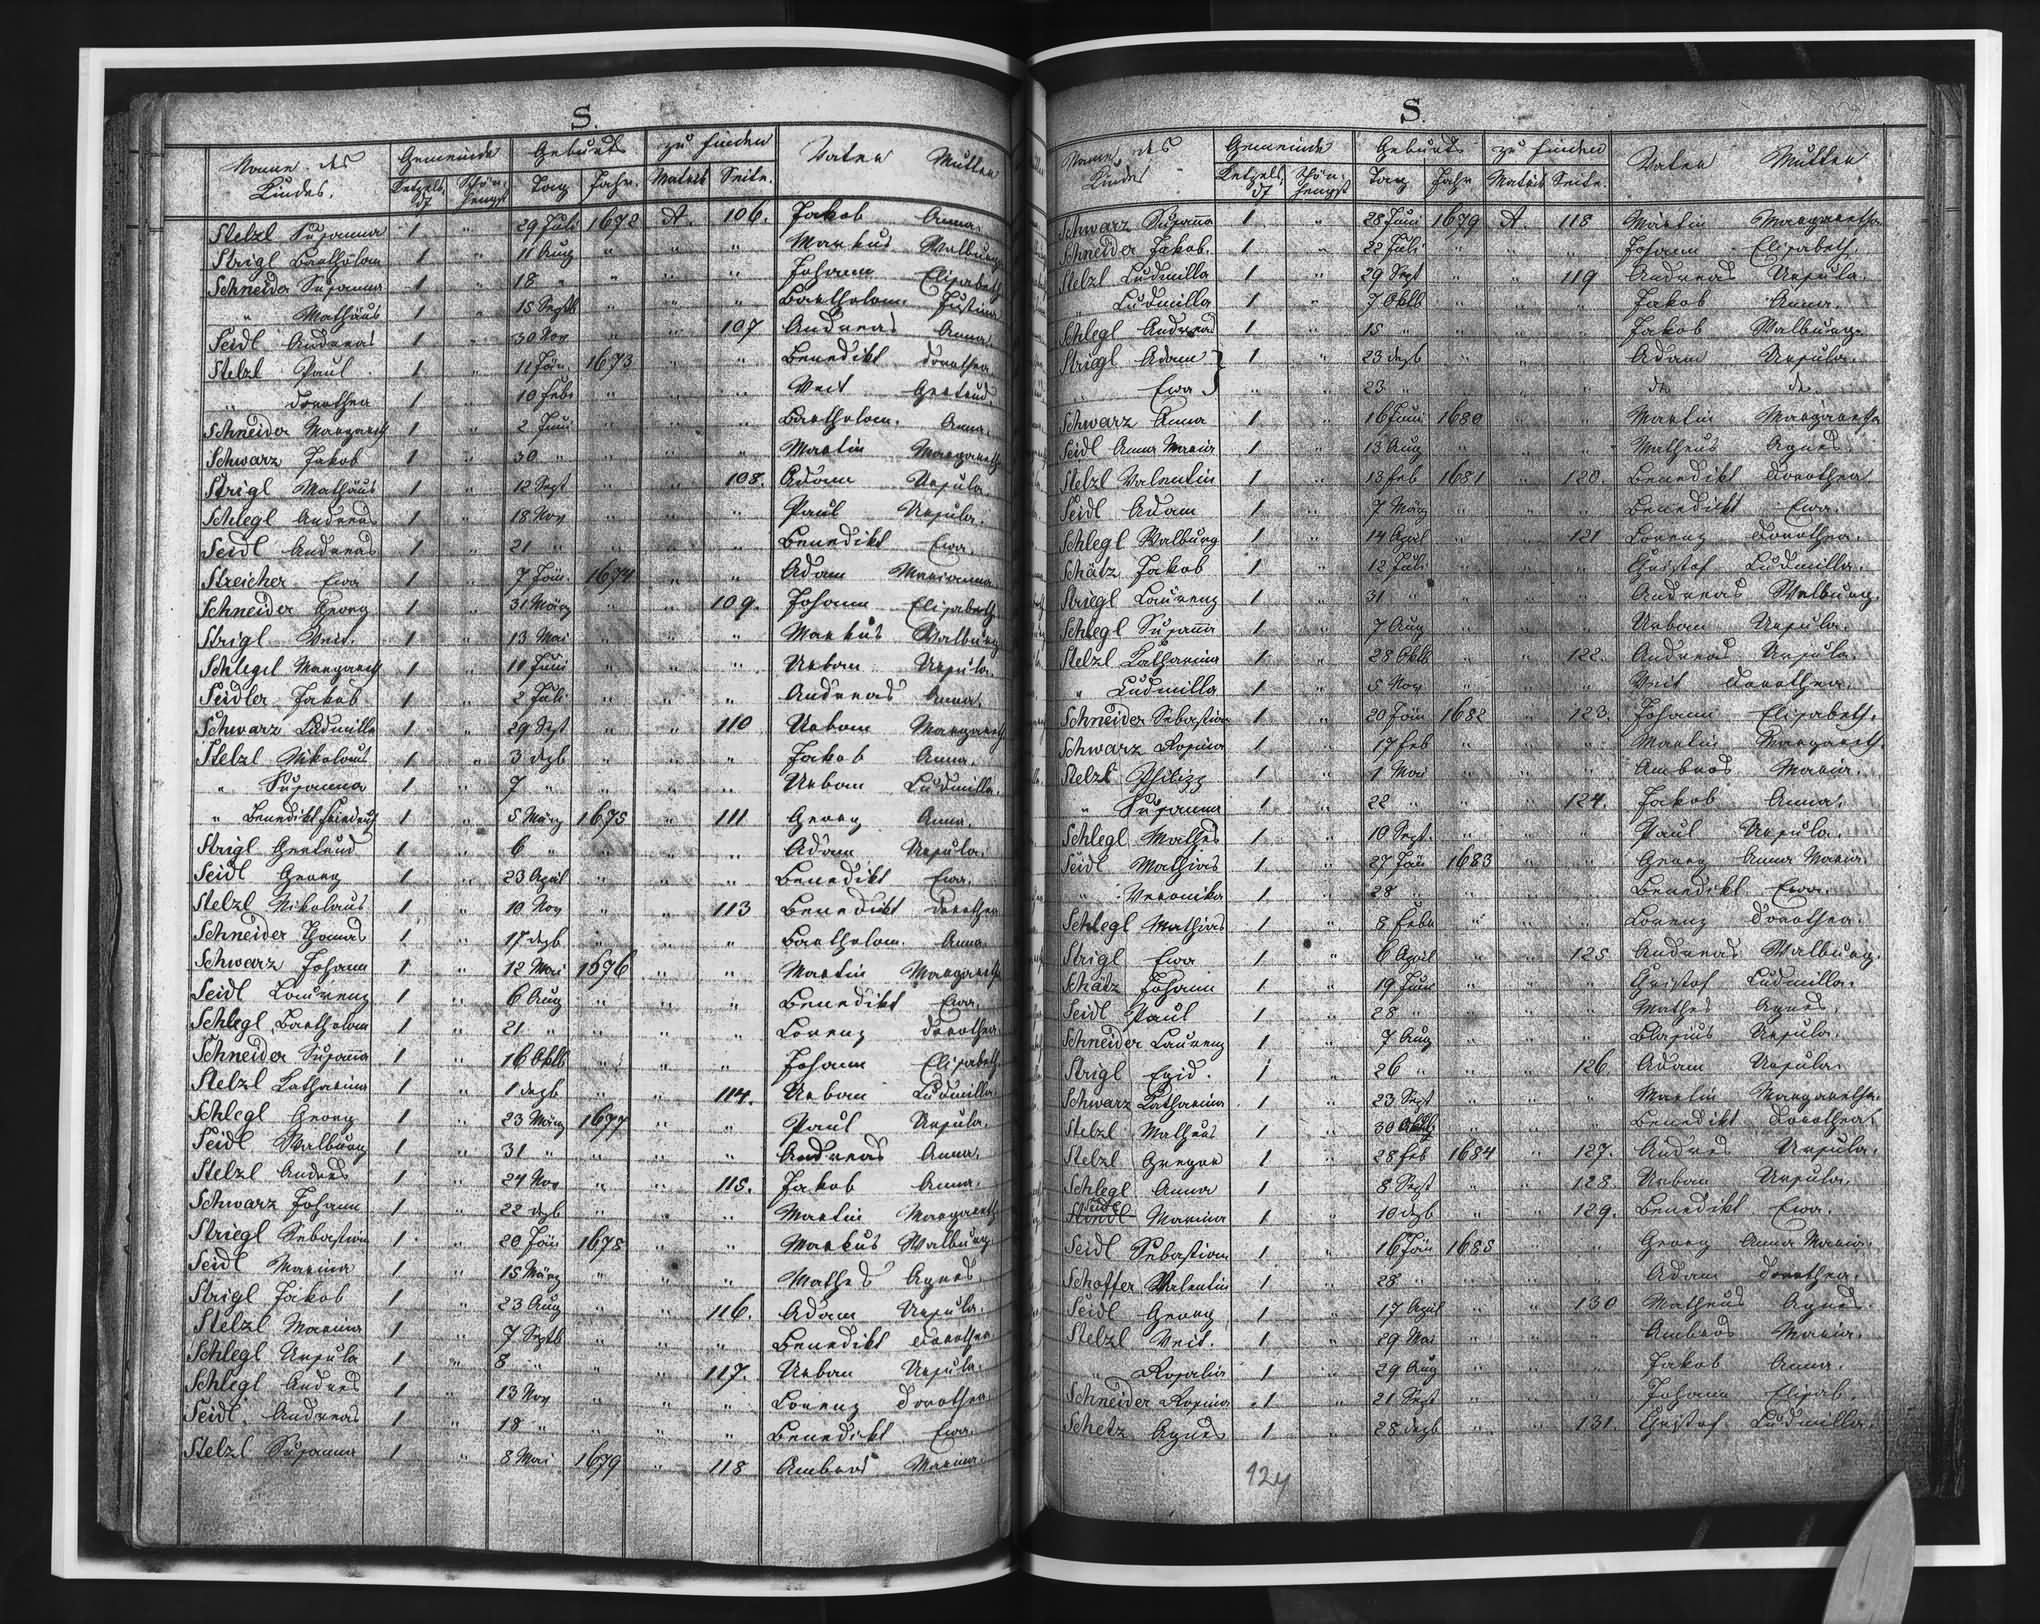 S.
Name des Kindes. Gemeinde Ketzelsdf Schönhengst Geburts Tag Jahr. zu finden Matrik Seite. Vater Mutter
Stelzl Susanna 1 " 29 Juli 1672 A. 106. Jakob Anna.
Strigl Bartholom 1 " 11 Aug " " " Markus Walburg
Schneider Susanna 1 " 18 " " " " Johann Elisabeth
" Mathäus 1 " 15 Septb " " " Bartholom. Justina
Seidl Andreas 1 " 30 Nov " " 107 Andreas Anna
Stelzl Paul 1 " 11 Jän. 1673 " " Benedikt Dorothea
" Dorothea 1 " 10 Febr " " " Veit Gertrud.
Schneider Margareth 1 " 2 Juni " " " Bartholom. Anna.
Schwarz Jakob 1 " 30 " " " " Martin Margareth
Strigl Mathäus 1 " 12 Sept " " 108. Adam Ursula
Schlegl Andreas 1 " 18 Nov " " " Paul Ursula.
Seidl Andreas 1 " 21 " " " " Benedikt Ewa.
Streicher Ewa 1 " 7 Jän. 1674 " " Adam Marianna
Schneider Georg 1 " 31 März " " 109. Johann Elisabeth
Strigl Veit. 1 " 13 Mai " " " Markus Walburg
Schlegel Margareth 1 " 11 Juni " " " Urban Ursula
Seidler Jakob 1 " 2 Juli " " " Andreas Anna.
Schwarz Ludmilla 1 " 29 Sept " " 110 Urban Margareth
Stelzl Nikolaus 1 " 3 dezb " " " Jakob Anna.
" Susanna 1 " 7 " " " " Urban Ludmilla.
" Benedikt Friedrich 1 " 5 März 1675 " 111 Georg Anna.
Strigl Gertrud 1 " 6 " " " " Adam Ursula.
Seidl Georg 1 " 23 April " " " Benedikt Ewa.
Stelzl Nikolaus 1 " 10 Nov " " 113 Benedikt Dorothea
Schneider Thomas 1 " 17 dezb " " " Bartholom. Anna
Schwarz Johann 1 " 12 Mai 1676 " " Martin Margareth
Seidl Laurenz 1 " 6 Aug " " " Benedikt Ewa.
Schlegl Bartholom 1 " 21 " " " " Lorenz Dorothea
Schneider Susanna 1 " 16 Oktb " " " Johann Elisabeth
Stelzl Katharina 1 " 1 dezb " " 114. Urban Ludmilla
Schlegl Georg 1 " 23 März 1677 " " Paul Ursula.
Seidl Walburg 1 " 31 " " " " Andreas Anna.
Stelzl Andres 1 " 24 Nov " " 115. Jakob Anna.
Schwarz Johann 1 " 22 dezb " " " Martin Margareth
Striegl Sebastian 1 " 20 Jän 1678 " " Markus Walburg
Seidl Marina 1 " 15 März " " " Mathes Agnes.
Strigl Jakob 1 " 23 Aug " " 116. Adam Ursula.
Stelzl Marina 1 " 7 Septb " " " Benedikt Dorothea
Schlegl Ursula 1 " 8 " " " 117. Urban Ursula.
Schlegl Andres 1 " 13 Nov " " " Lorenz Dorothea
Seidl. Andreas 1 " 18 " " " " Benedikt Ewa.
Stelzl Susanna 1 " 8 Mai 1679 " 118 Ambros Marina.
S.
Name des Kindes Gemeinde Ketzelsdf Schönhengst Geburts Tag Jahr zu finden Matrik Seite. Vater Mutter
Schwarz Susanna 1 " 28 Juni 1679 A. 118 Martin Margaretha
Schneider Jakob. 1 " 22 Juli " " " Johann Elisabeth.
Stelzl Ludmilla 1 " 29 Sept " " 119 Andreas Ursula.
" Ludmilla 1 " 7 Oktb " " " Jakob Anna.
Schlegl Andreas 1 " 15 " " " " Jakob Walburg.
Strigl Adam } 1 " 23 dezb " " " Adam Ursula.
" Ewa } " " 23 " " " " dto dto
Schwarz Anna 1 " 16 Juni 1680 " " Martin Margaretha
Seidl Anna Maria 1 " 13 Aug " " " Matheus Agnes.
Stelzl Valentin 1 " 13 Feb 1681 " 120. Benedikt Dorothea
Seidl Adam 1 " 7 März " " " Benedikt Ewa.
Schlegl Walburg 1 " 14 April " " 121 Lorenz Dorothea.
Schätz Jakob 1 " 12 Juli " " " Christof Ludmilla.
Striegl Laurenz 1 " 31 " " " " Andreas Walburg.
Schlegl Susanna 1 " 7 Aug " " " Urban Ursula.
Stelzl Katharina 1 " 28 Oktb " " 122. Andreas Ursula.
" Ludmilla 1 " 5 Nov " " " Veit Dorothea.
Schneider Sebastian 1 " 20 Jän 1682 " 123. Johann Elisabeth.
Schwarz Rosina 1 " 17 Feb " " " Martin Margareth.
Stelzl Philipp 1 " 1 Mai " " " Ambros Maria.
" Susanna 1 " 22 " " " 124. Jakob Anna.
Schlegl Mathes 1 " 10 Sept. " " " Paul Ursula.
Seidl Mathias 1 " 27 Jän 1683 " " Georg Anna Maria.
" Veronika 1 " 28 " " " " Benedikt Ewa.
Schlegl Mathias 1 " 8 Febr " " " Lorenz Dorothea.
Strigl Ewa 1 " 6 April " " 125 Andreas Walburg.
Schätz Johann 1 " 19 Juni " " " Christof Ludmilla.
Seidl Paul 1 " 28 " " " " Mathes Agnes.
Schneider Laurenz 1 " 7 Aug " " " Blasius Ursula.
Strigl Egid. 1 " 26 " " " 126. Adam Ursula.
Schwarz Katharina 1 " 23 Sept " " " Martin Margaretha.
Stelzl Matheus 1 " 30 Oktb " " " Benedikt Dorothea.
Stelzl Gregor 1 " 28 Feb 1684 " 127. Andres Ursula.
Schlegl Anna 1 " 8 Sept " " 128. Urban Ursula.
Seidl Marina 1 " 10 dezb " " 129. Benedikt Ewa.
Seidl Sebastian 1 " 16 Jän 1685 " " Georg Anna Maria.
Schoffer Valentin 1 " 28 " " " " Adam Dorothea.
Seidl Georg 1 " 17 April " " 130 Matheus Agnes.
Stelzl Veit. 1 " 29 Mai " " " Ambros Maria.
" Rosalia 1 " 29 Aug " " " Jakob Anna.
Schneider Rosina 1 " 21 Sept " " " Johann Elisab.
Schetz Agnes 1 " 28 dezb " " 131. Christof Ludmilla.
124